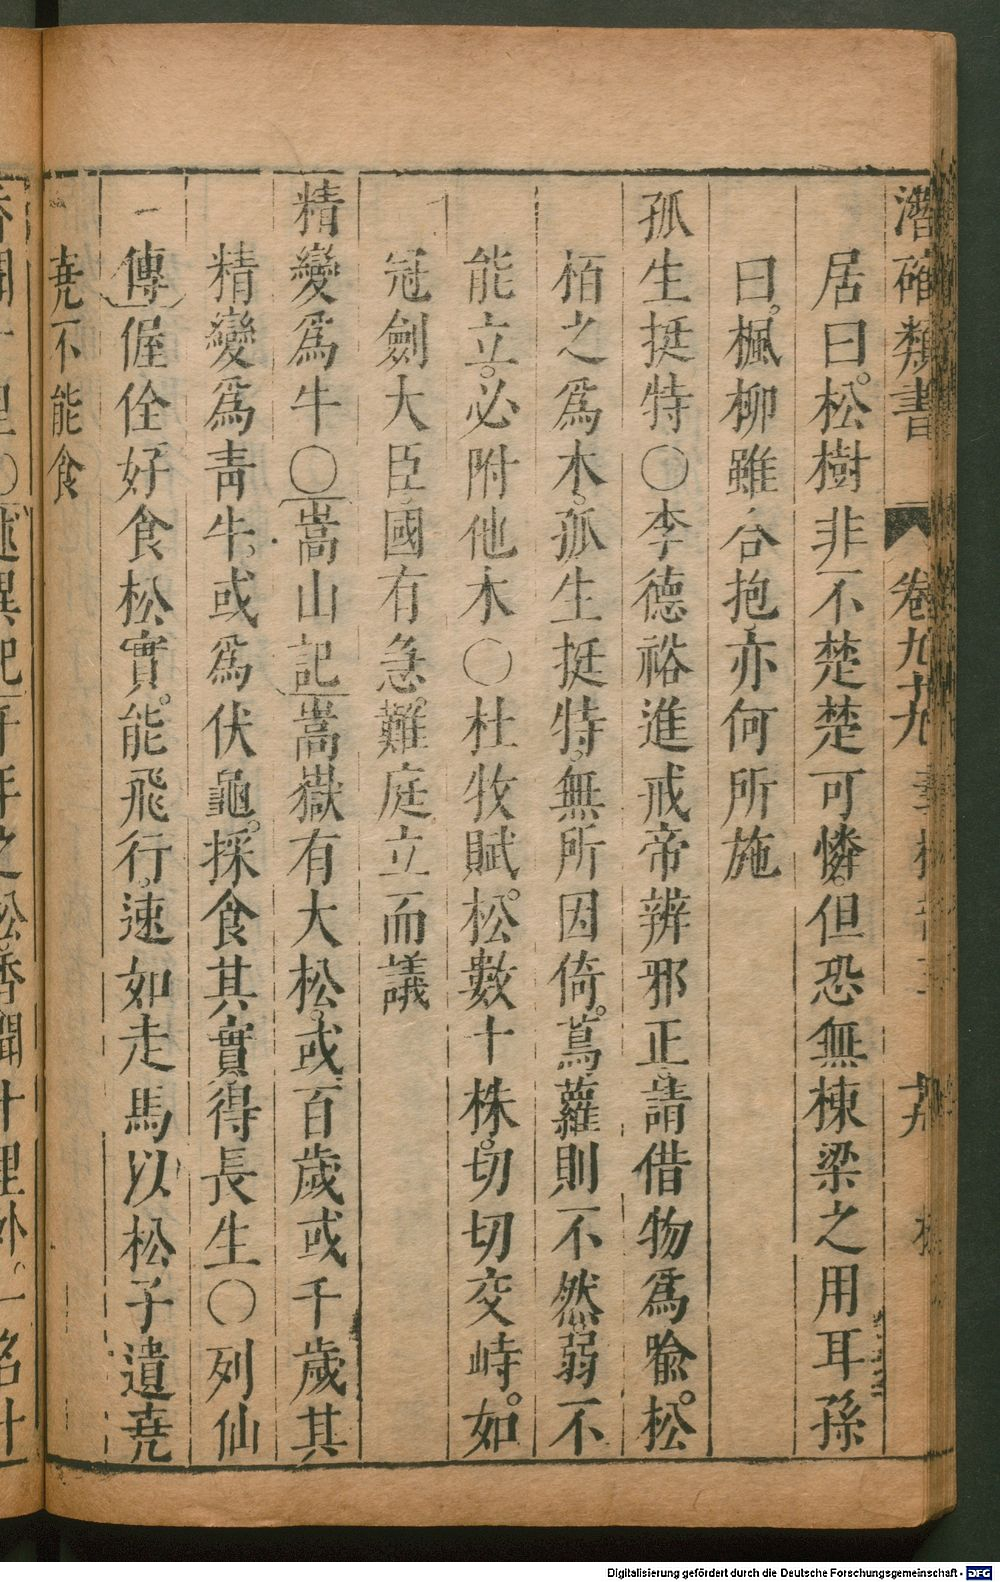 潛確類書 卷九十九
居曰松樹非不楚楚可憐但恐無棟梁之用耳孫
曰楓柳雖合抱亦何所施
孤生挺特○李德裕進戒帝辨邪正請借物爲喻松
栢之爲木孤生挺特無所因倚蔦蘿則不然弱不
能立必附他木○杜牧賦松數十株切切交峙如
冠劍大臣國有急難庭立而議
精變爲牛○嵩山記嵩嶽有大松或百歲或千歲其
精變爲青牛或爲伏龜採食其實得長生○列仙
傳偓佺好食松實能飛行速如走馬以松子遺堯
堯不能食
Digitalisierung gefördert durch die Deutsche Forschungsgemeinschaft - DFG